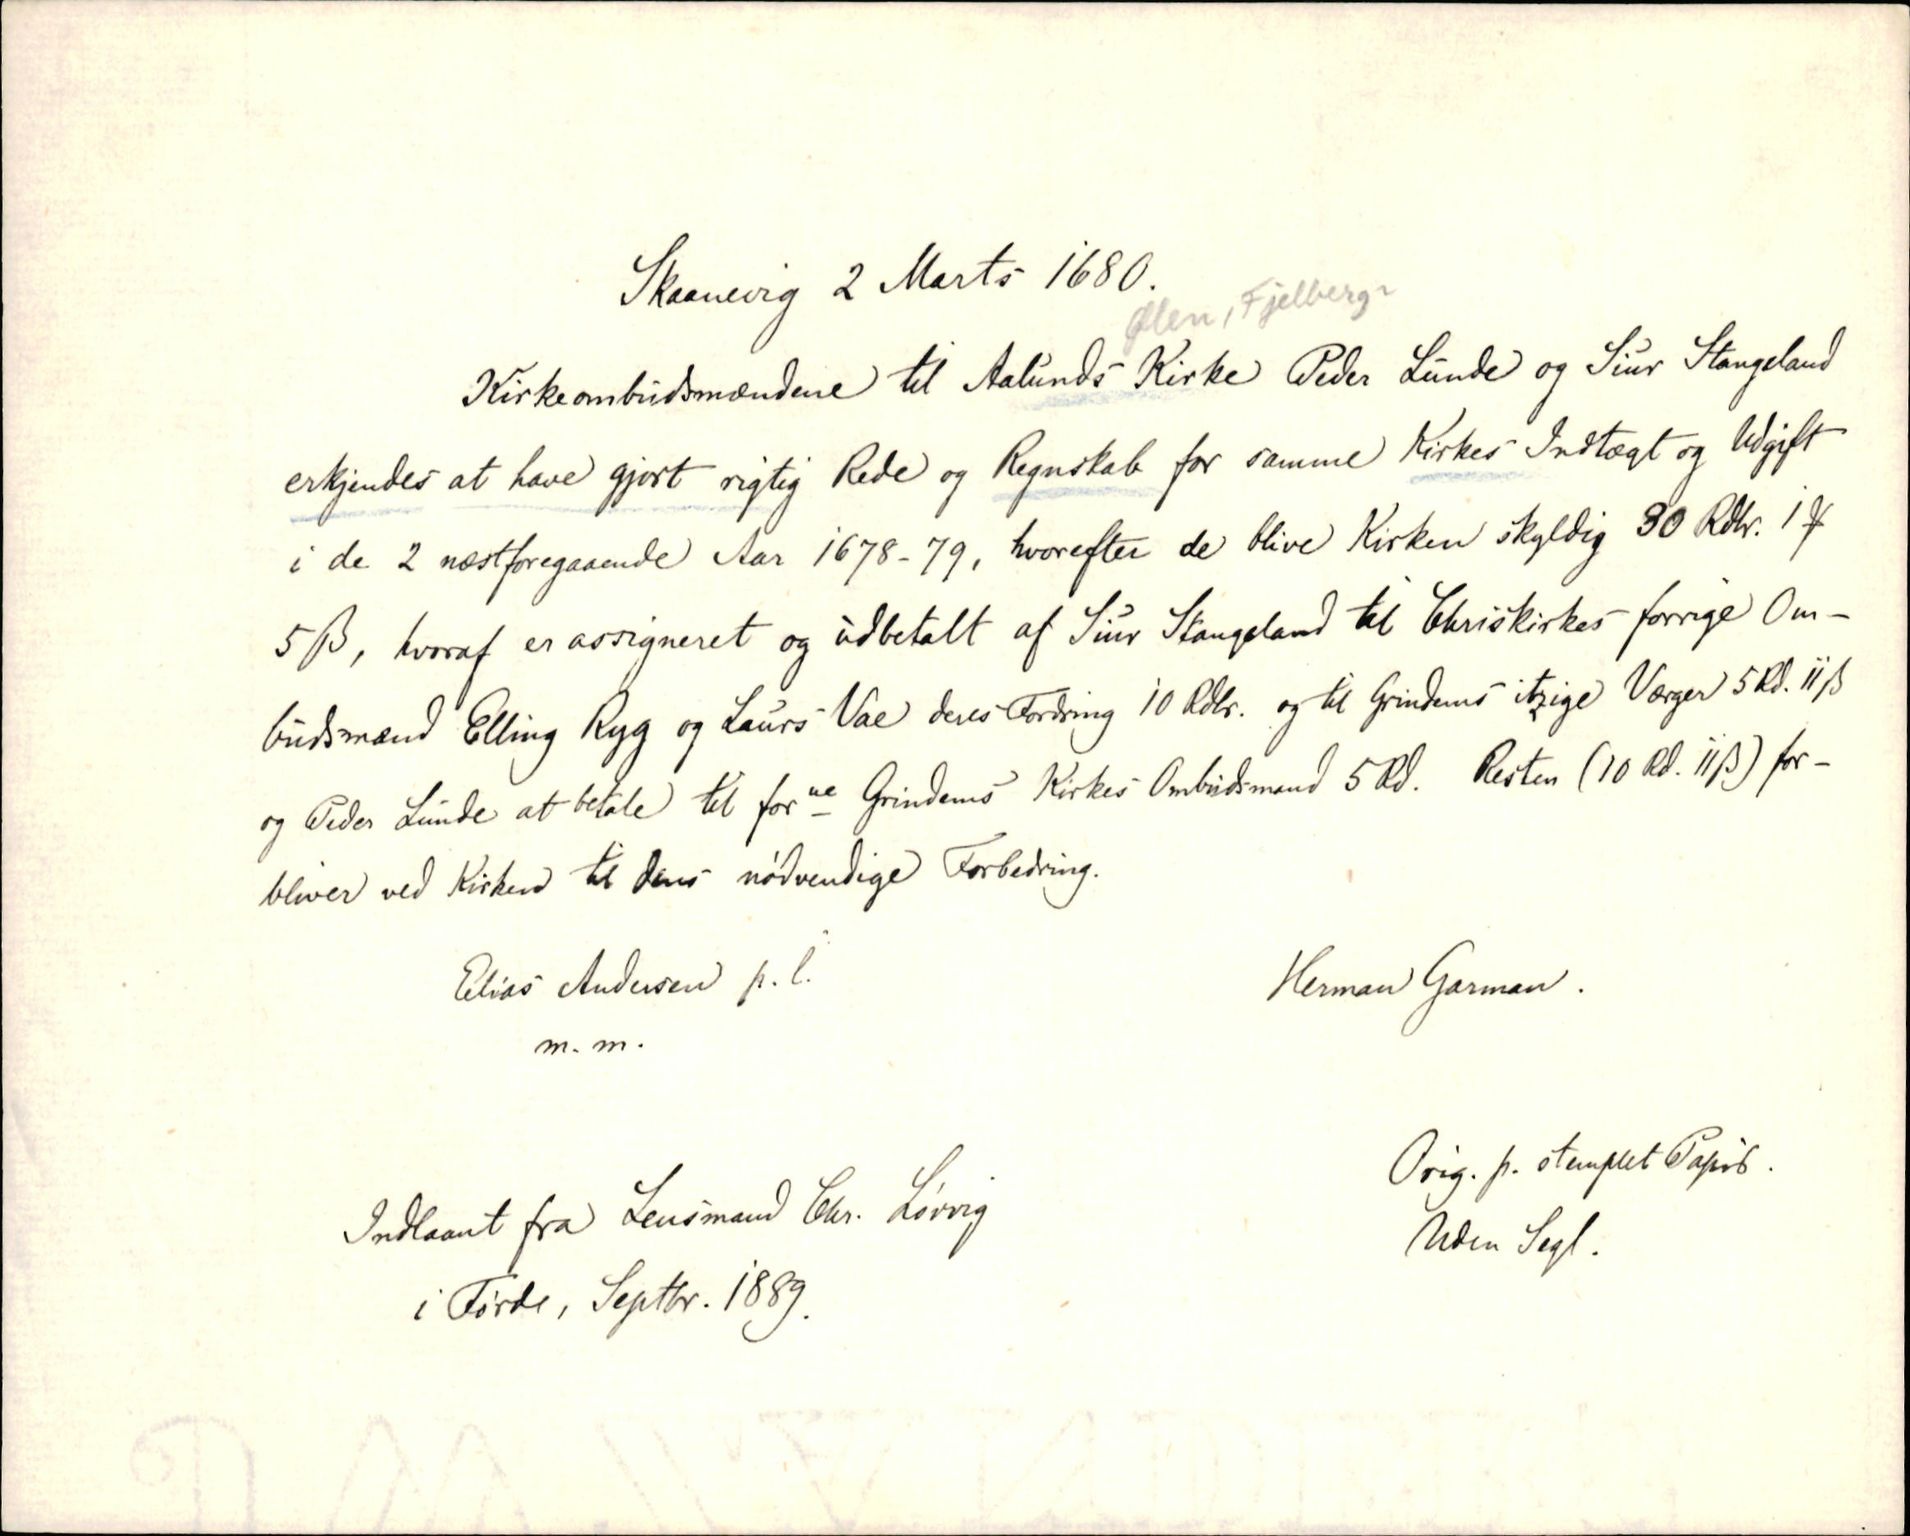 Skaanevig 2 Marts 1680.
Ølen, Fjelberg
Kirkeombudsmændene til Aalunds Kirke Peder Lunde og Siur Stangeland
erkjendes at have gjort rigtig Rede og Regnskab for samme Kirkes Indtægt og Udgift
i de 2 næstforegaaende Aar 1678-79, hvorefter de blive Kirken skyldig 30 Rdlr. 1
5 ß, hvoraf er assigneret og udbetalt af Siur Stangeland til Chriskirkes forrige Om-
budsmænd Elling Ryg og Laurs Vae deres Fordring 10 Rdlr. og til Grindems itzige Værger 5 Rd. 11 ß
og Peder Lunde at betale til forne Grindems Kirkes Ombudsmænd 5 Rd. Resten (10 Rd. 11 ß) for-
bliver ved Kirken til dens nødvendige Forbedring.
Elias Andersen p. l. Herman Garman.
m. m.
Orig. p. stemplet Papir.
Indlaant fra Lensmand Chr. Løvvig
Uden Segl.
i Førde, Septbr. 1889.